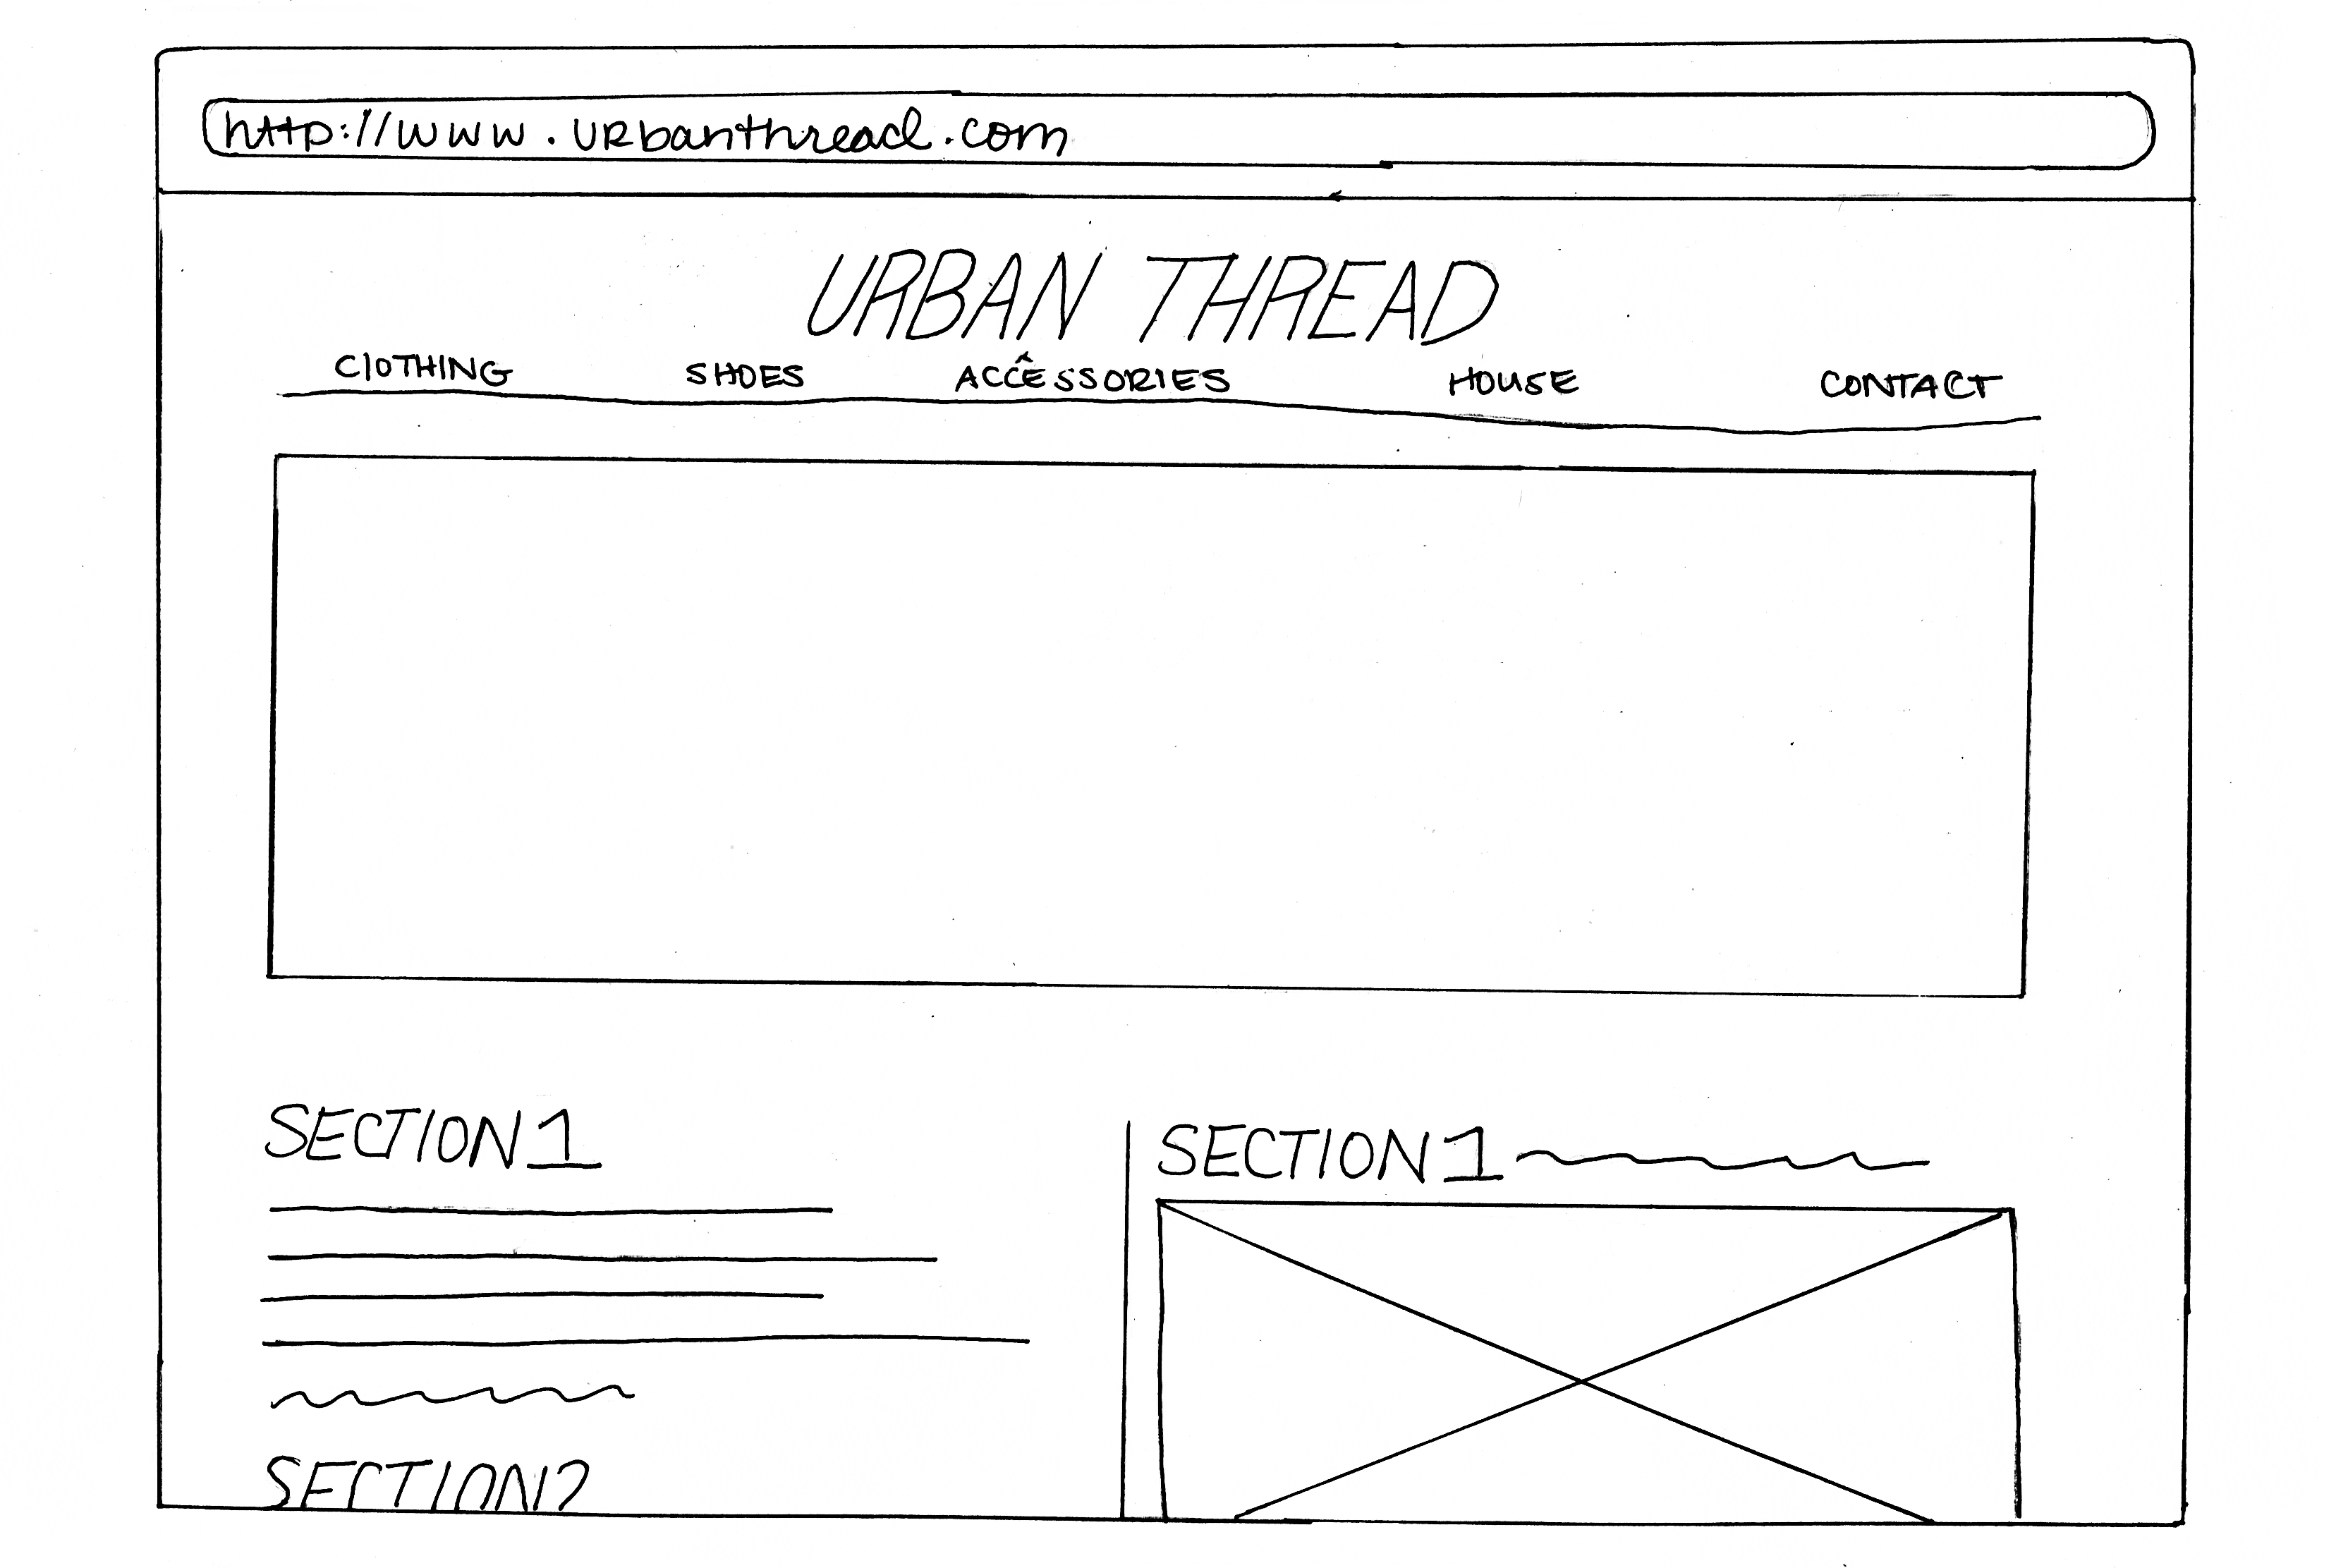 http://www.urbanthread.com
URBAN THREAD
CLOTHING SHOES ACCESSORIES HOUSE CONTACT
SECTION 1
SECTION 1
SECTION 2